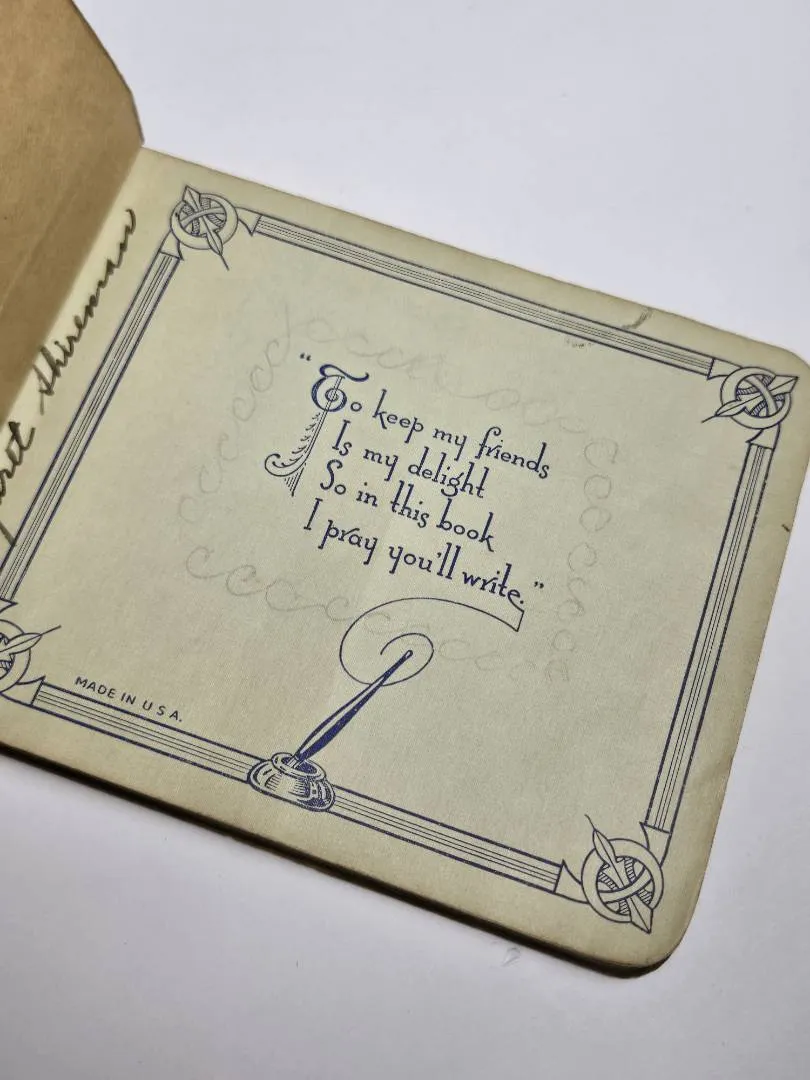 “To keep my friends
Is my delight
So in this book
I pray you'll write.”
MADE IN U S A.
Shireman